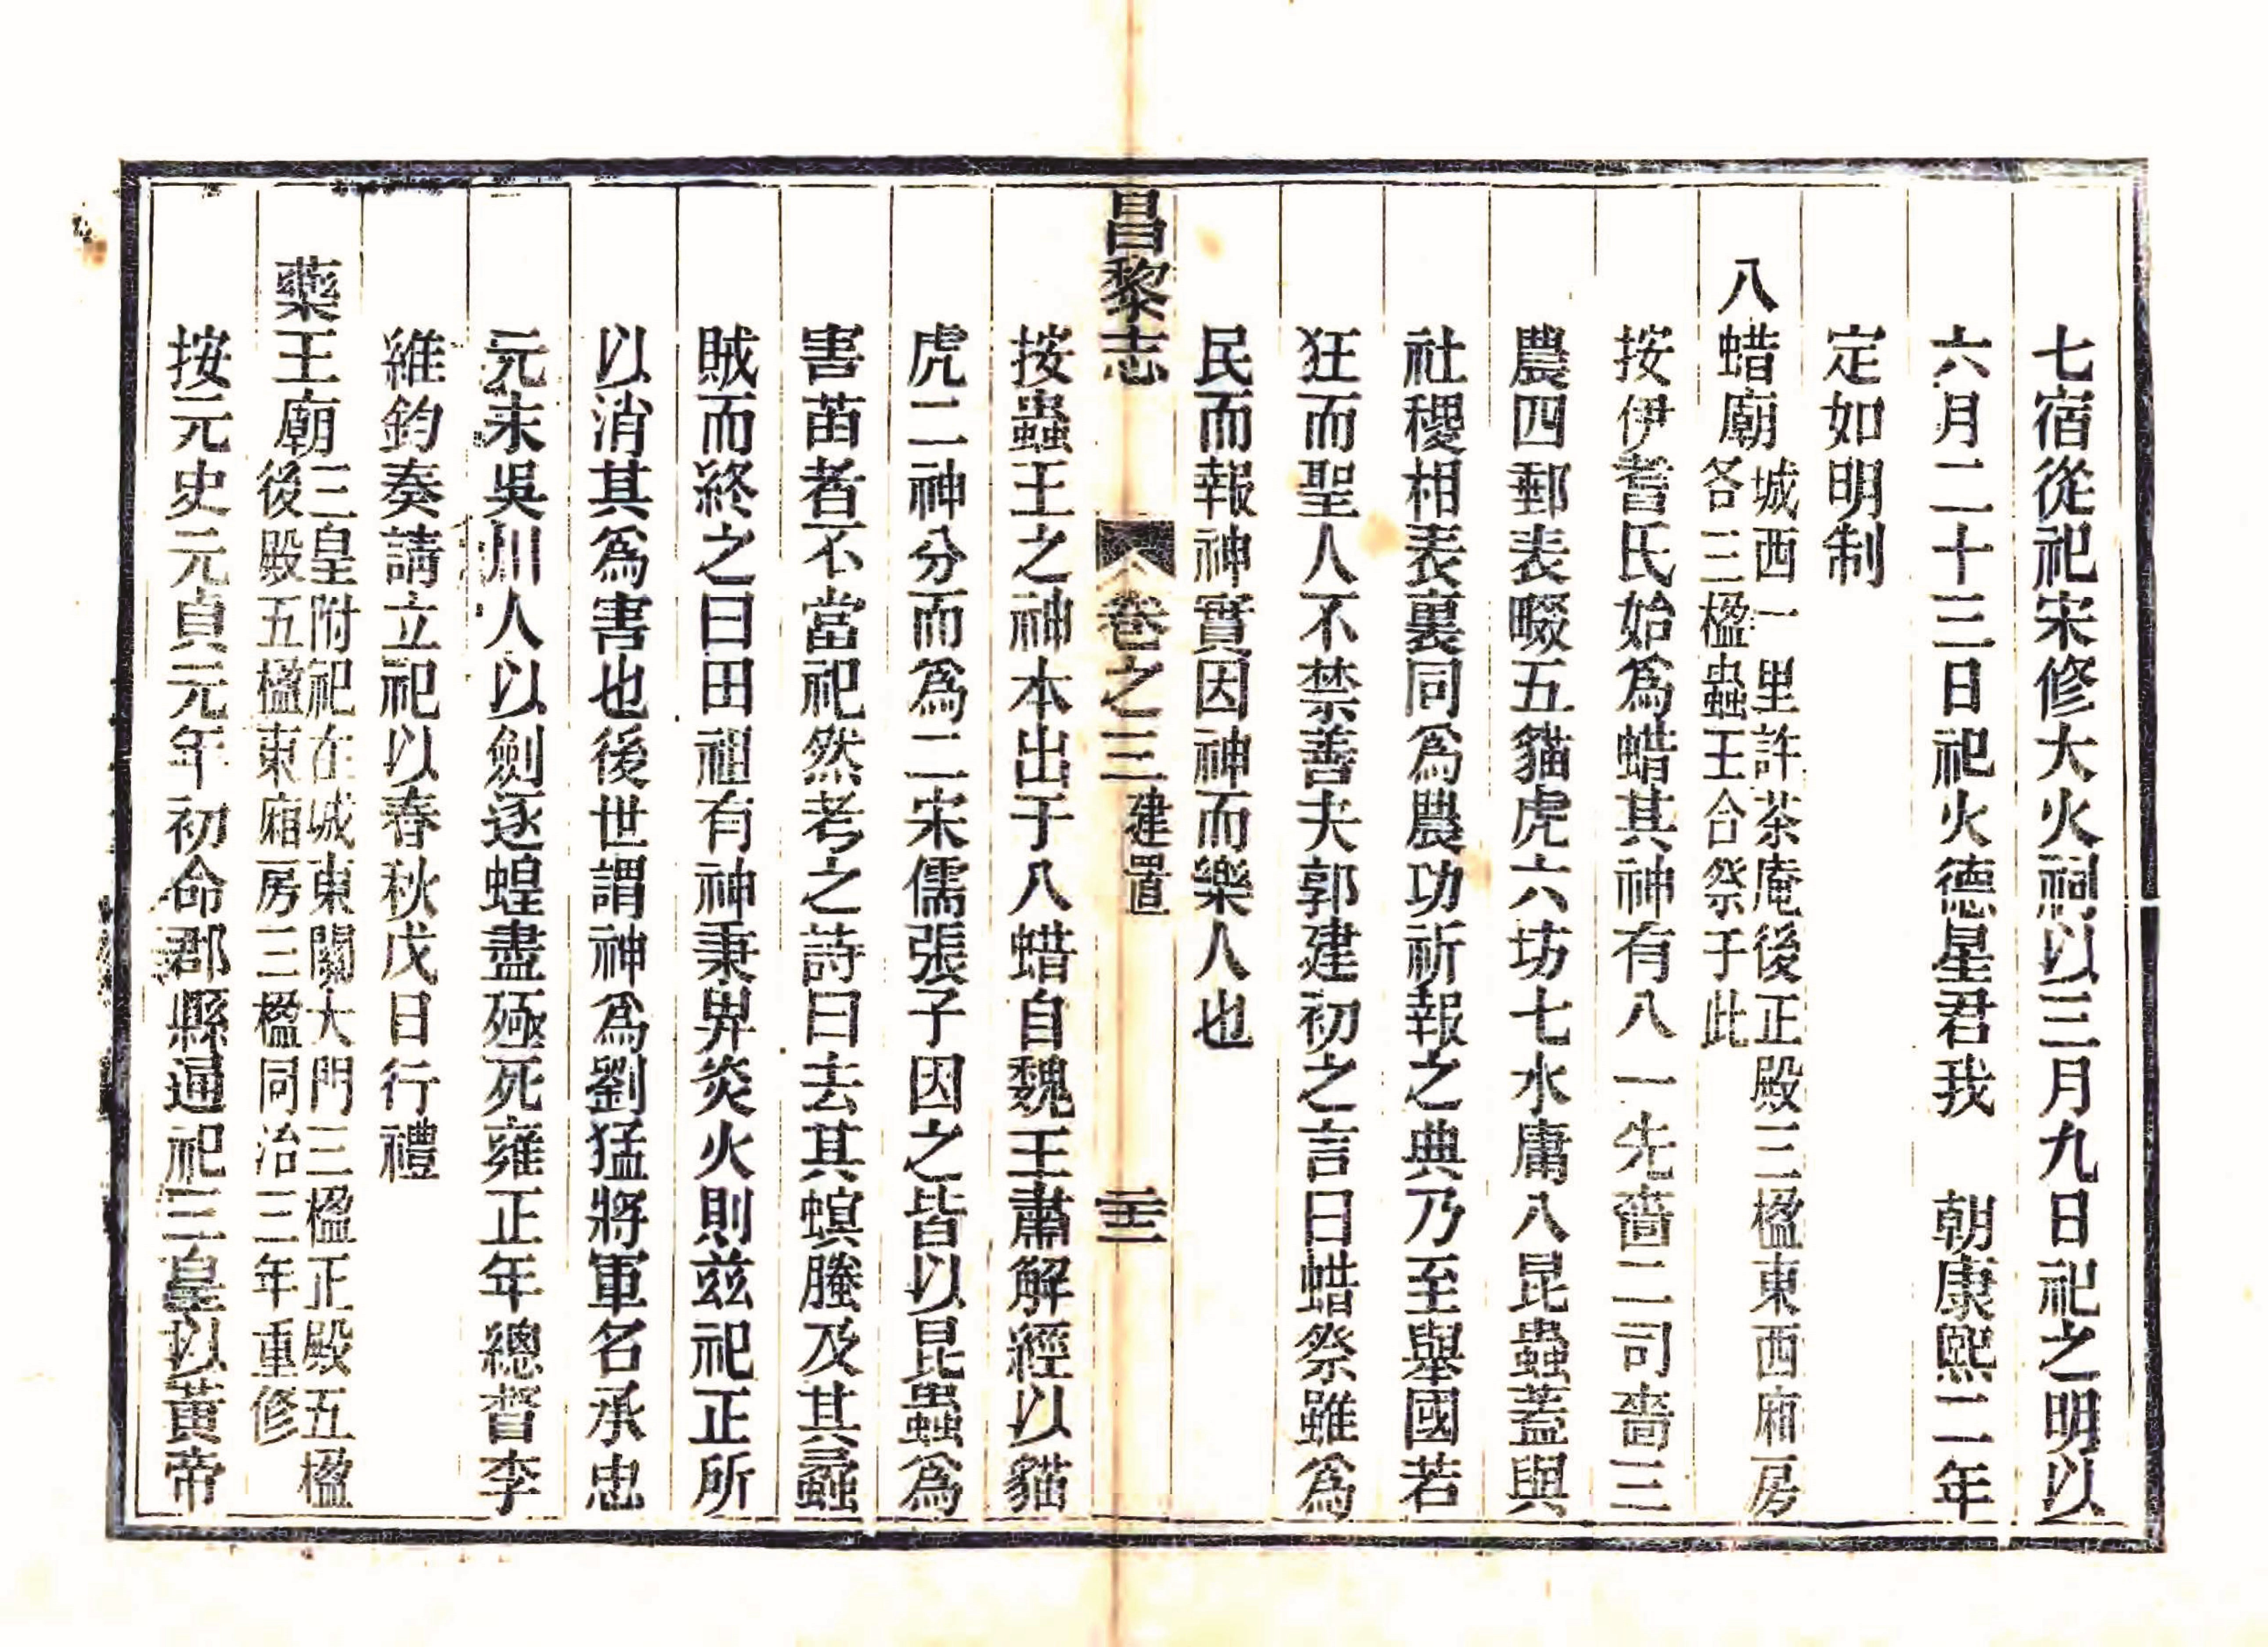 七宿從祀宋修大火祠以三月九日祀之明以
六月二十三日祀火德星君我　朝康熙二年
定如明制
八蜡廟城西一里許茶庵後正殿三楹東西廂房
各三楹蟲王合祭于此
按伊耆氏始爲蜡其神有八一先嗇二司嗇三
農四郵表畷五貓虎六坊七水庸八昆蟲蓋與
社稷相表裏同爲農功祈報之典乃至舉國若
狂而聖人不禁善夫郭建初之言曰蜡祭雖爲
民而報神實因神而樂人也
昌黎志　卷之三　建置　二十三
按蟲王之神本出于八蜡自魏王肅解經以貓
虎二神分而爲二宋儒張子因之皆以昆蟲爲
害苗者不當祀然考之詩曰去其螟螣及其蟊
賊而終之曰田祖有神秉畀炎火則兹祀正所
以消其爲害也後世謂神爲劉猛將軍名承忠
元末吳川人以劍逐蝗盡殛死雍正年總督李
維鈞奏請立祀以春秋戊日行禮
藥王廟三皇附祀在城東關大門三楹正殿五楹
後殿五楹東廂房三楹同治三年重修
按元史元貞元年初命郡縣通祀三皇以黃帝